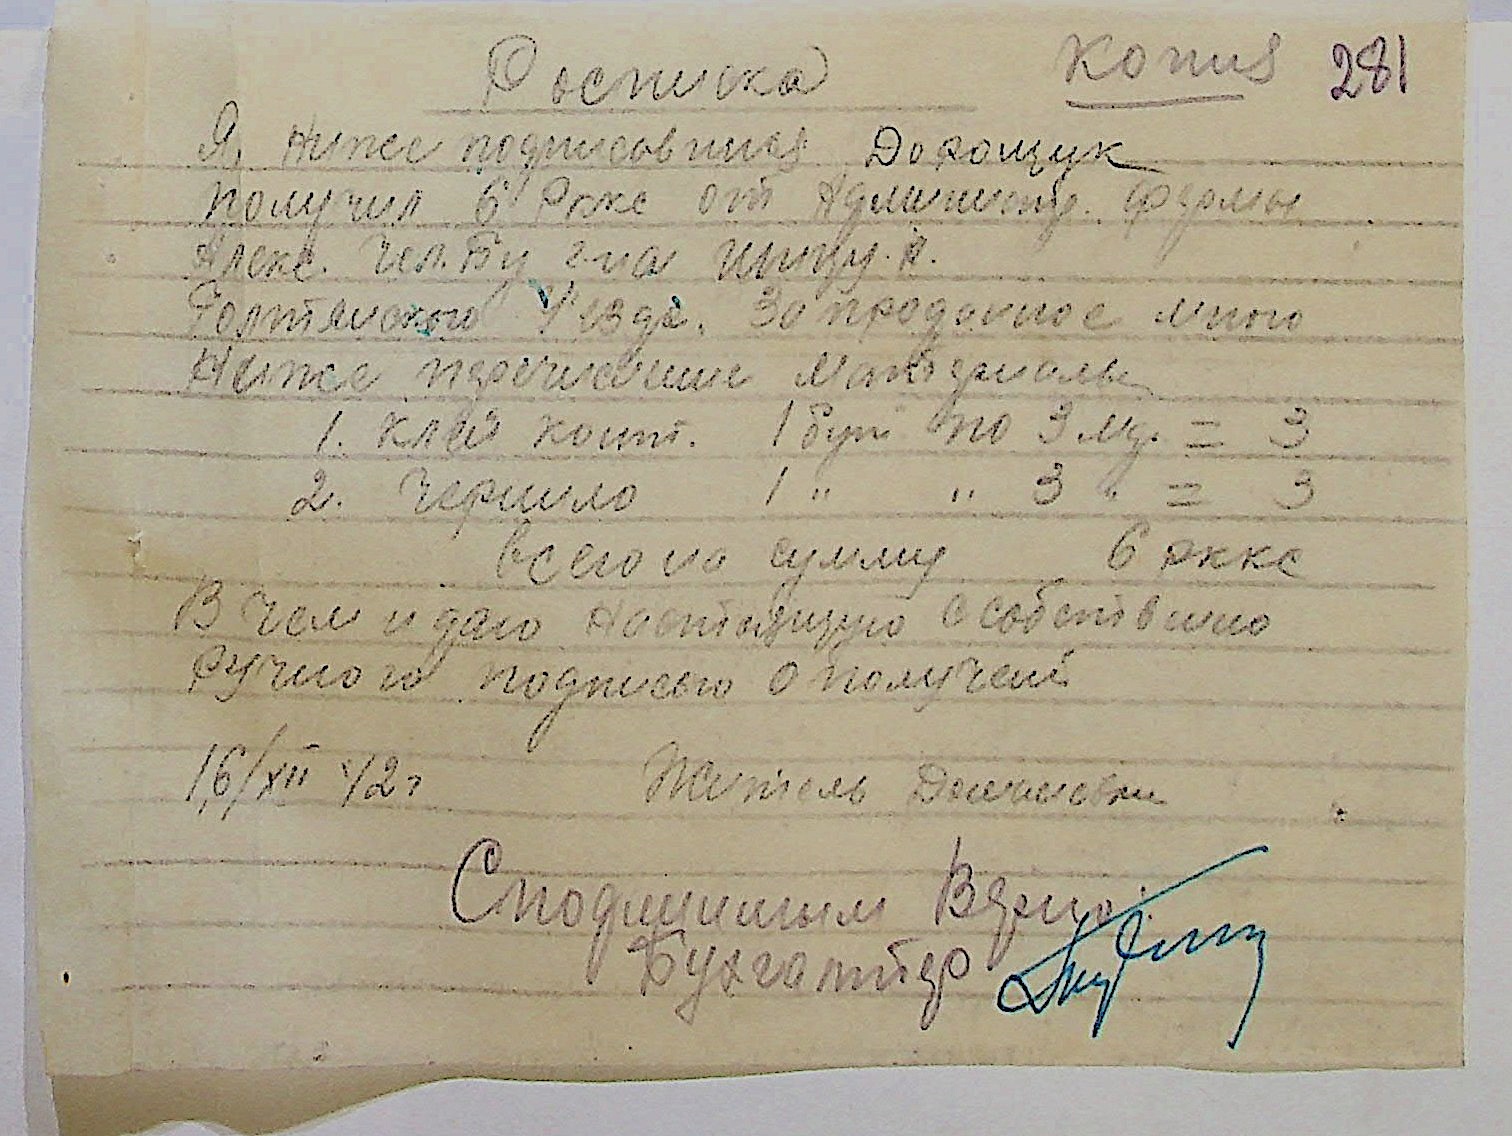 Росписка Копия 281
Я, Ниже подписовшия Дорощук
получил 6 Рккс от Администр. фермы
Алекс. Чел. Бу г-на
Голтянского Уезда. За проданое мною
Ниже перечислиние Материалы
1. Клей конт. 1 бут по 3 мр. = 3
2. Чернило 1 " " 3 " = 3
Всего на сумму 6 рккс
В чем и даю Настоящую Особствино
ручного подписью о получений
16/XII 42 г Житель
С подлинным Верно:
Бухгалтер